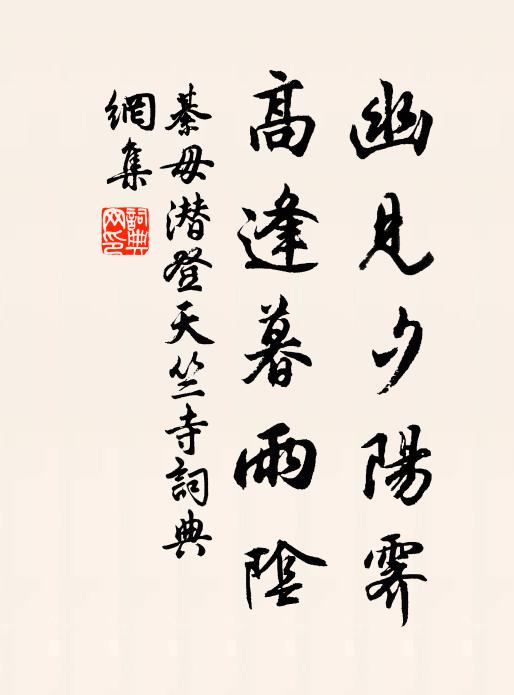 幽見夕陽霽
高逢暮雨陰
綦毋潜登天竺寺詞典
網集
詞典网印